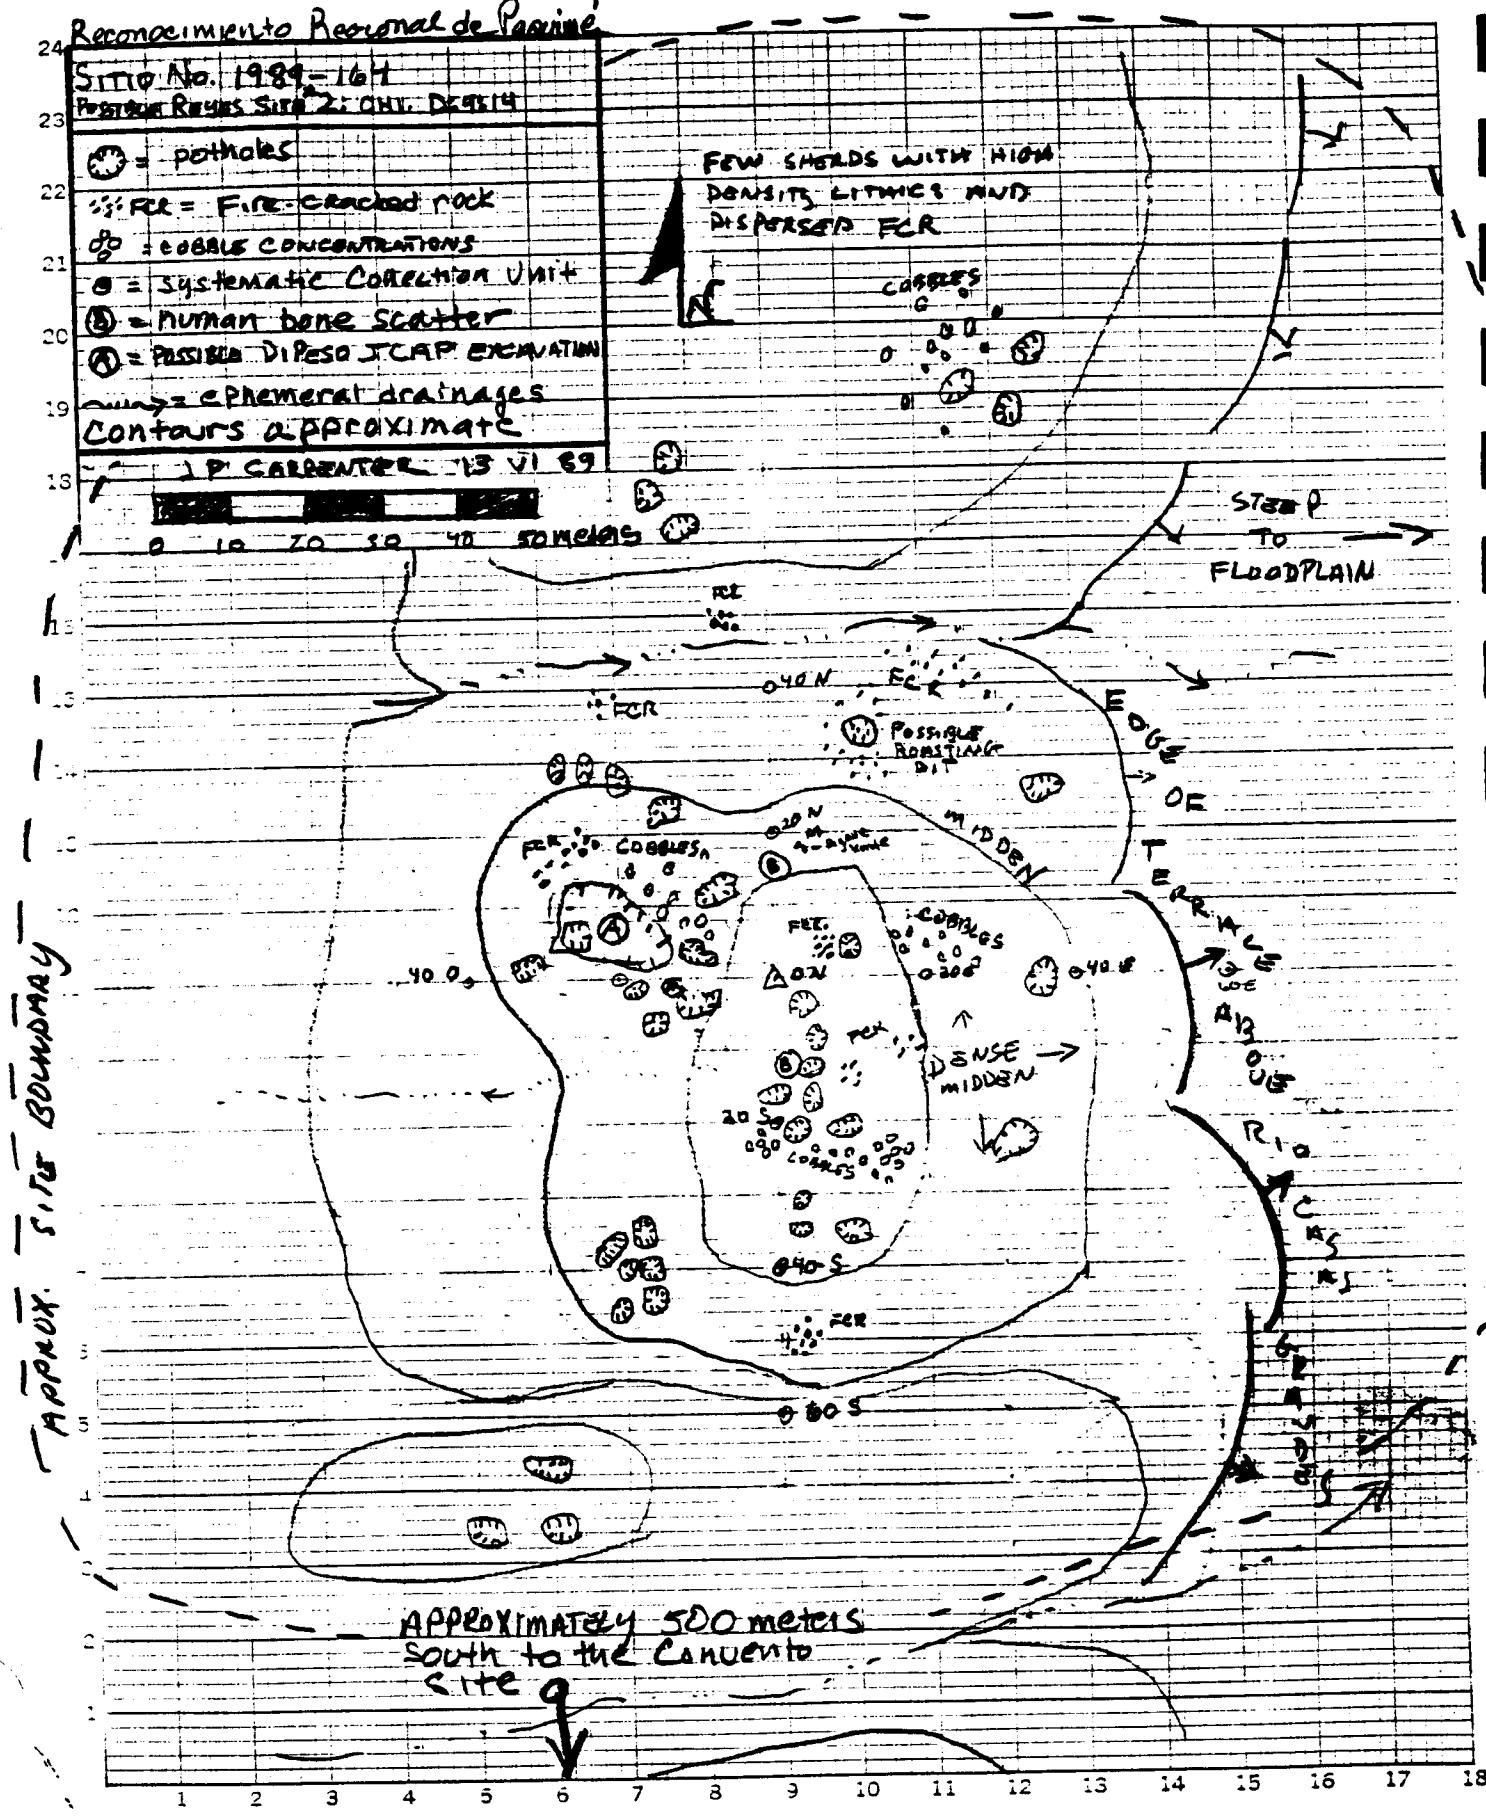 Reconocimiento Regional de Paquimé
SITIO No. 1989-164
POSSIBLE REYES SITE #2: CHI. D:9:14
= potholes
FCR = Fire-cracked rock
= COBBLE CONCENTRATIONS
= systematic Collection Unit
B = human bone scatter
A = POSSIBLE DIPESO JCAP EXCAVATION
= ephemeral drainages
Contours approximate
J P CARPENTER 13 VI 89
0 10 20 30 40 50 meters
N
FEW SHERDS WITH HIGH
DENSITY LITHICS AND
DISPERSED FCR
COBBLES
STEEP
TO
FLOODPLAIN
FCR
40 N
FCR
FCR
POSSIBLE
ROASTING
PIT
EDGE OF TERRACE ABOVE RIO CASAS GRANDES
MIDDEN
20 N
B
FCR
COBBLES
A
FCR
COBBLES
40 O
0 N
20 E
40 E
FCR
DENSE
MIDDEN
B
20 S
COBBLES
40 S
FCR
60 S
APPROX. SITE BOUNDARY
APPROXIMATELY 500 meters
South to the Convento
site
24
23
22
21
20
19
18
15
14
2
1
1 2 3 4 5 6 7 8 9 10 11 12 13 14 15 16 17 18